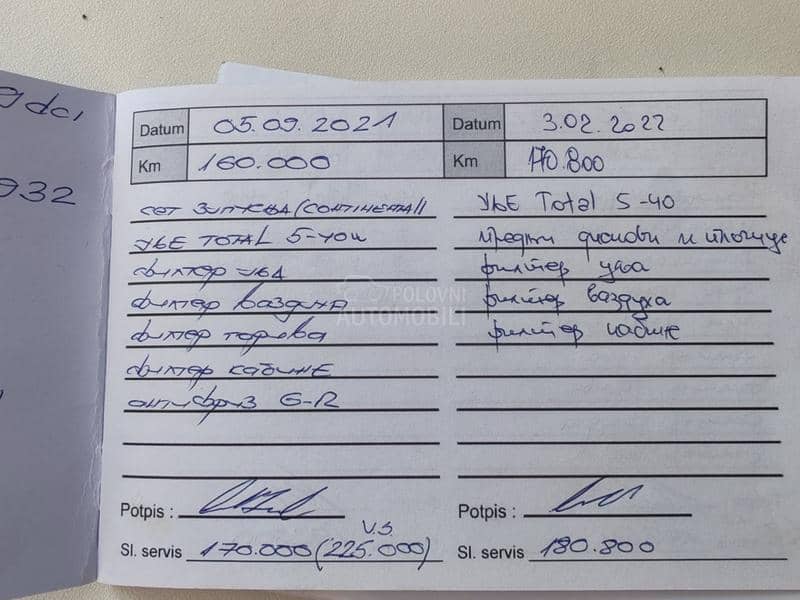 9 dci
932
Datum 05.09.2021
Km 160.000
сет зупчења (CONTINENTAL)
УЉЕ TOTAL 5-40W
филтер уља
филтер ваздуха
филтер горива
филтер кабине
антифриз G-12
Potpis :
V.S.
Sl. servis 170.000 (225.000)
Datum 3.02.2022
Km 170.800
УЉЕ Total 5-40
предњи дискови и плочице
филтер уља
филтер ваздуха
филтер кабине
Potpis :
Sl. servis 180.800
POLOVNI
AUTOMOBILI